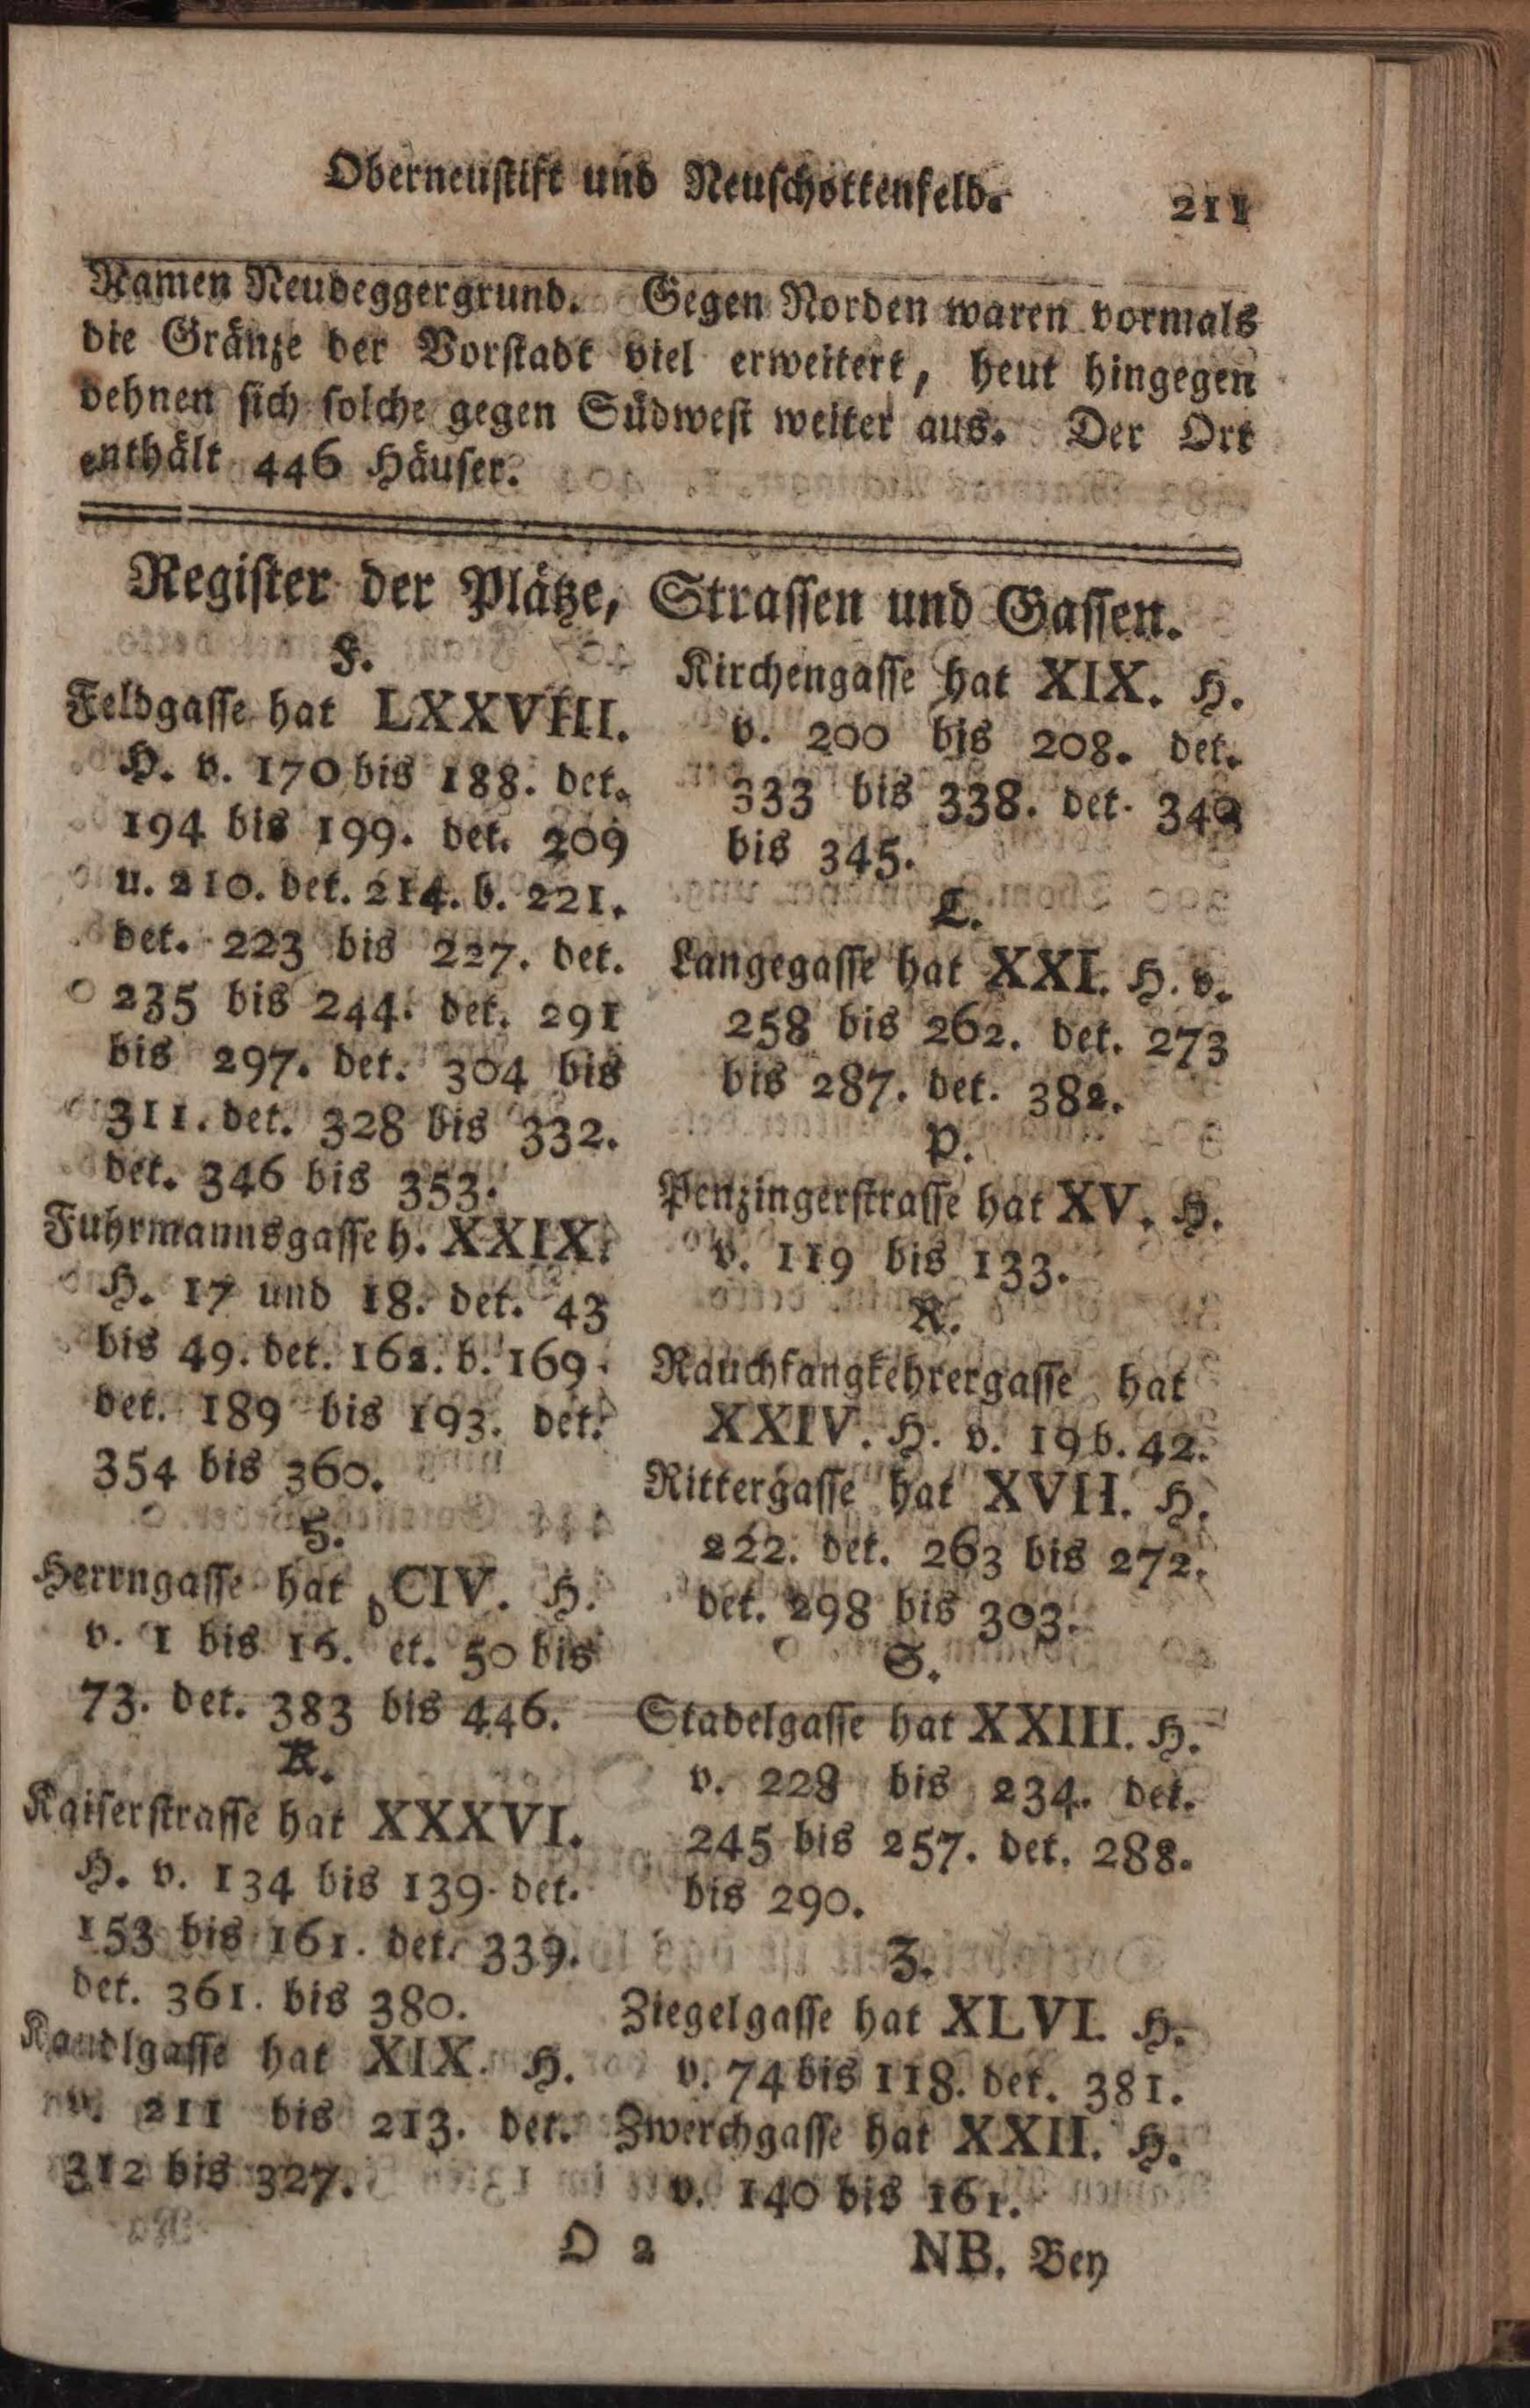 Oberneustift und Neuschottenfeld. 211
Namen Neudeggergrund. Gegen Norden waren vormals
die Gränze der Vorstadt viel erweitert, heut hingegen
dehnen sich solche gegen Südwest weiter aus. Der Ort
enthält 446 Häuser.
Register der Plätze, Strassen und Gassen.
F.
Feldgasse hat LXXVIII.
H. v. 170 bis 188. det.
194 bis 199. det. 209
u. 210. det. 214. b. 221.
det. 223 bis 227. det.
235 bis 244. det. 291
bis 297. det. 304 bis
311. det. 328 bis 332.
det. 346 bis 353.
Fuhrmannsgasse h. XXIX.
H. 17 und 18. det. 43
bis 49. det. 162. b. 169.
det. 189 bis 193. det.
354 bis 360.
H.
Herrngasse hat CIV. H.
v. 1 bis 16. det. 50 bis
73. det. 383 bis 446.
K.
Kaiserstrasse hat XXXVI.
H. v. 134 bis 139. det.
153 bis 161. det. 339.
det. 361. bis 380.
Kandlgasse hat XIX. H.
v. 211 bis 213. det.
312 bis 327.
Kirchengasse hat XIX. H.
v. 200 bis 208. det.
333 bis 338. det. 340
bis 345.
L.
Langegasse hat XXI. H. v.
258 bis 262. det. 273
bis 287. det. 382.
P.
Penzingerstrasse hat XV. H.
v. 119 bis 133.
R.
Rauchfangkehrergasse hat
XXIV. H. v. 19 b. 42.
Rittergasse hat XVII. H.
222. det. 263 bis 272.
det. 298 bis 303.
S.
Stadelgasse hat XXIII. H.
v. 228 bis 234. det.
245 bis 257. det. 288.
bis 290.
Z.
Ziegelgasse hat XLVI. H.
v. 74 bis 118. det. 381.
Zwerchgasse hat XXII. H.
v. 140 bis 161.
O 2 NB. Bey